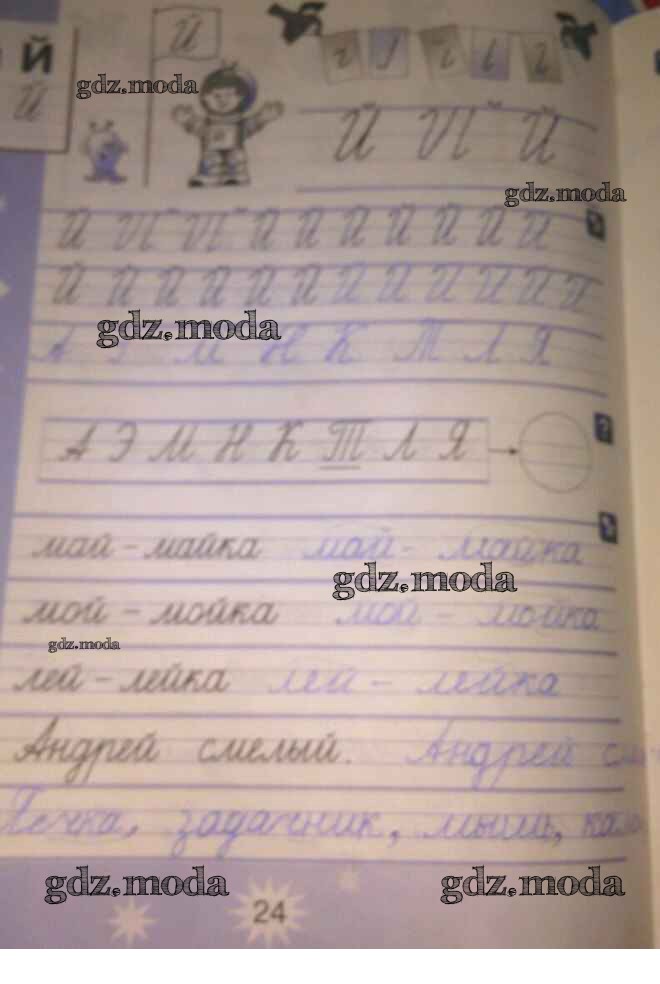 Й
Й
Й
gdz.moda
Й И Й
gdz.moda
Й И И Й Й Й Й Й Й Й
Й Й Й Й Й Й Й Й Й Й Й Й
gdz.moda
А Э М Н К Т Л Я
А Э М Н К Т Л Я
май – майка май – майка
gdz.moda
мой – мойка мой – мойка
gdz.moda
лей – лейка лей – лейка
Андрей смелый. Андрей
задачник, мышь,
gdz.moda gdz.moda
24